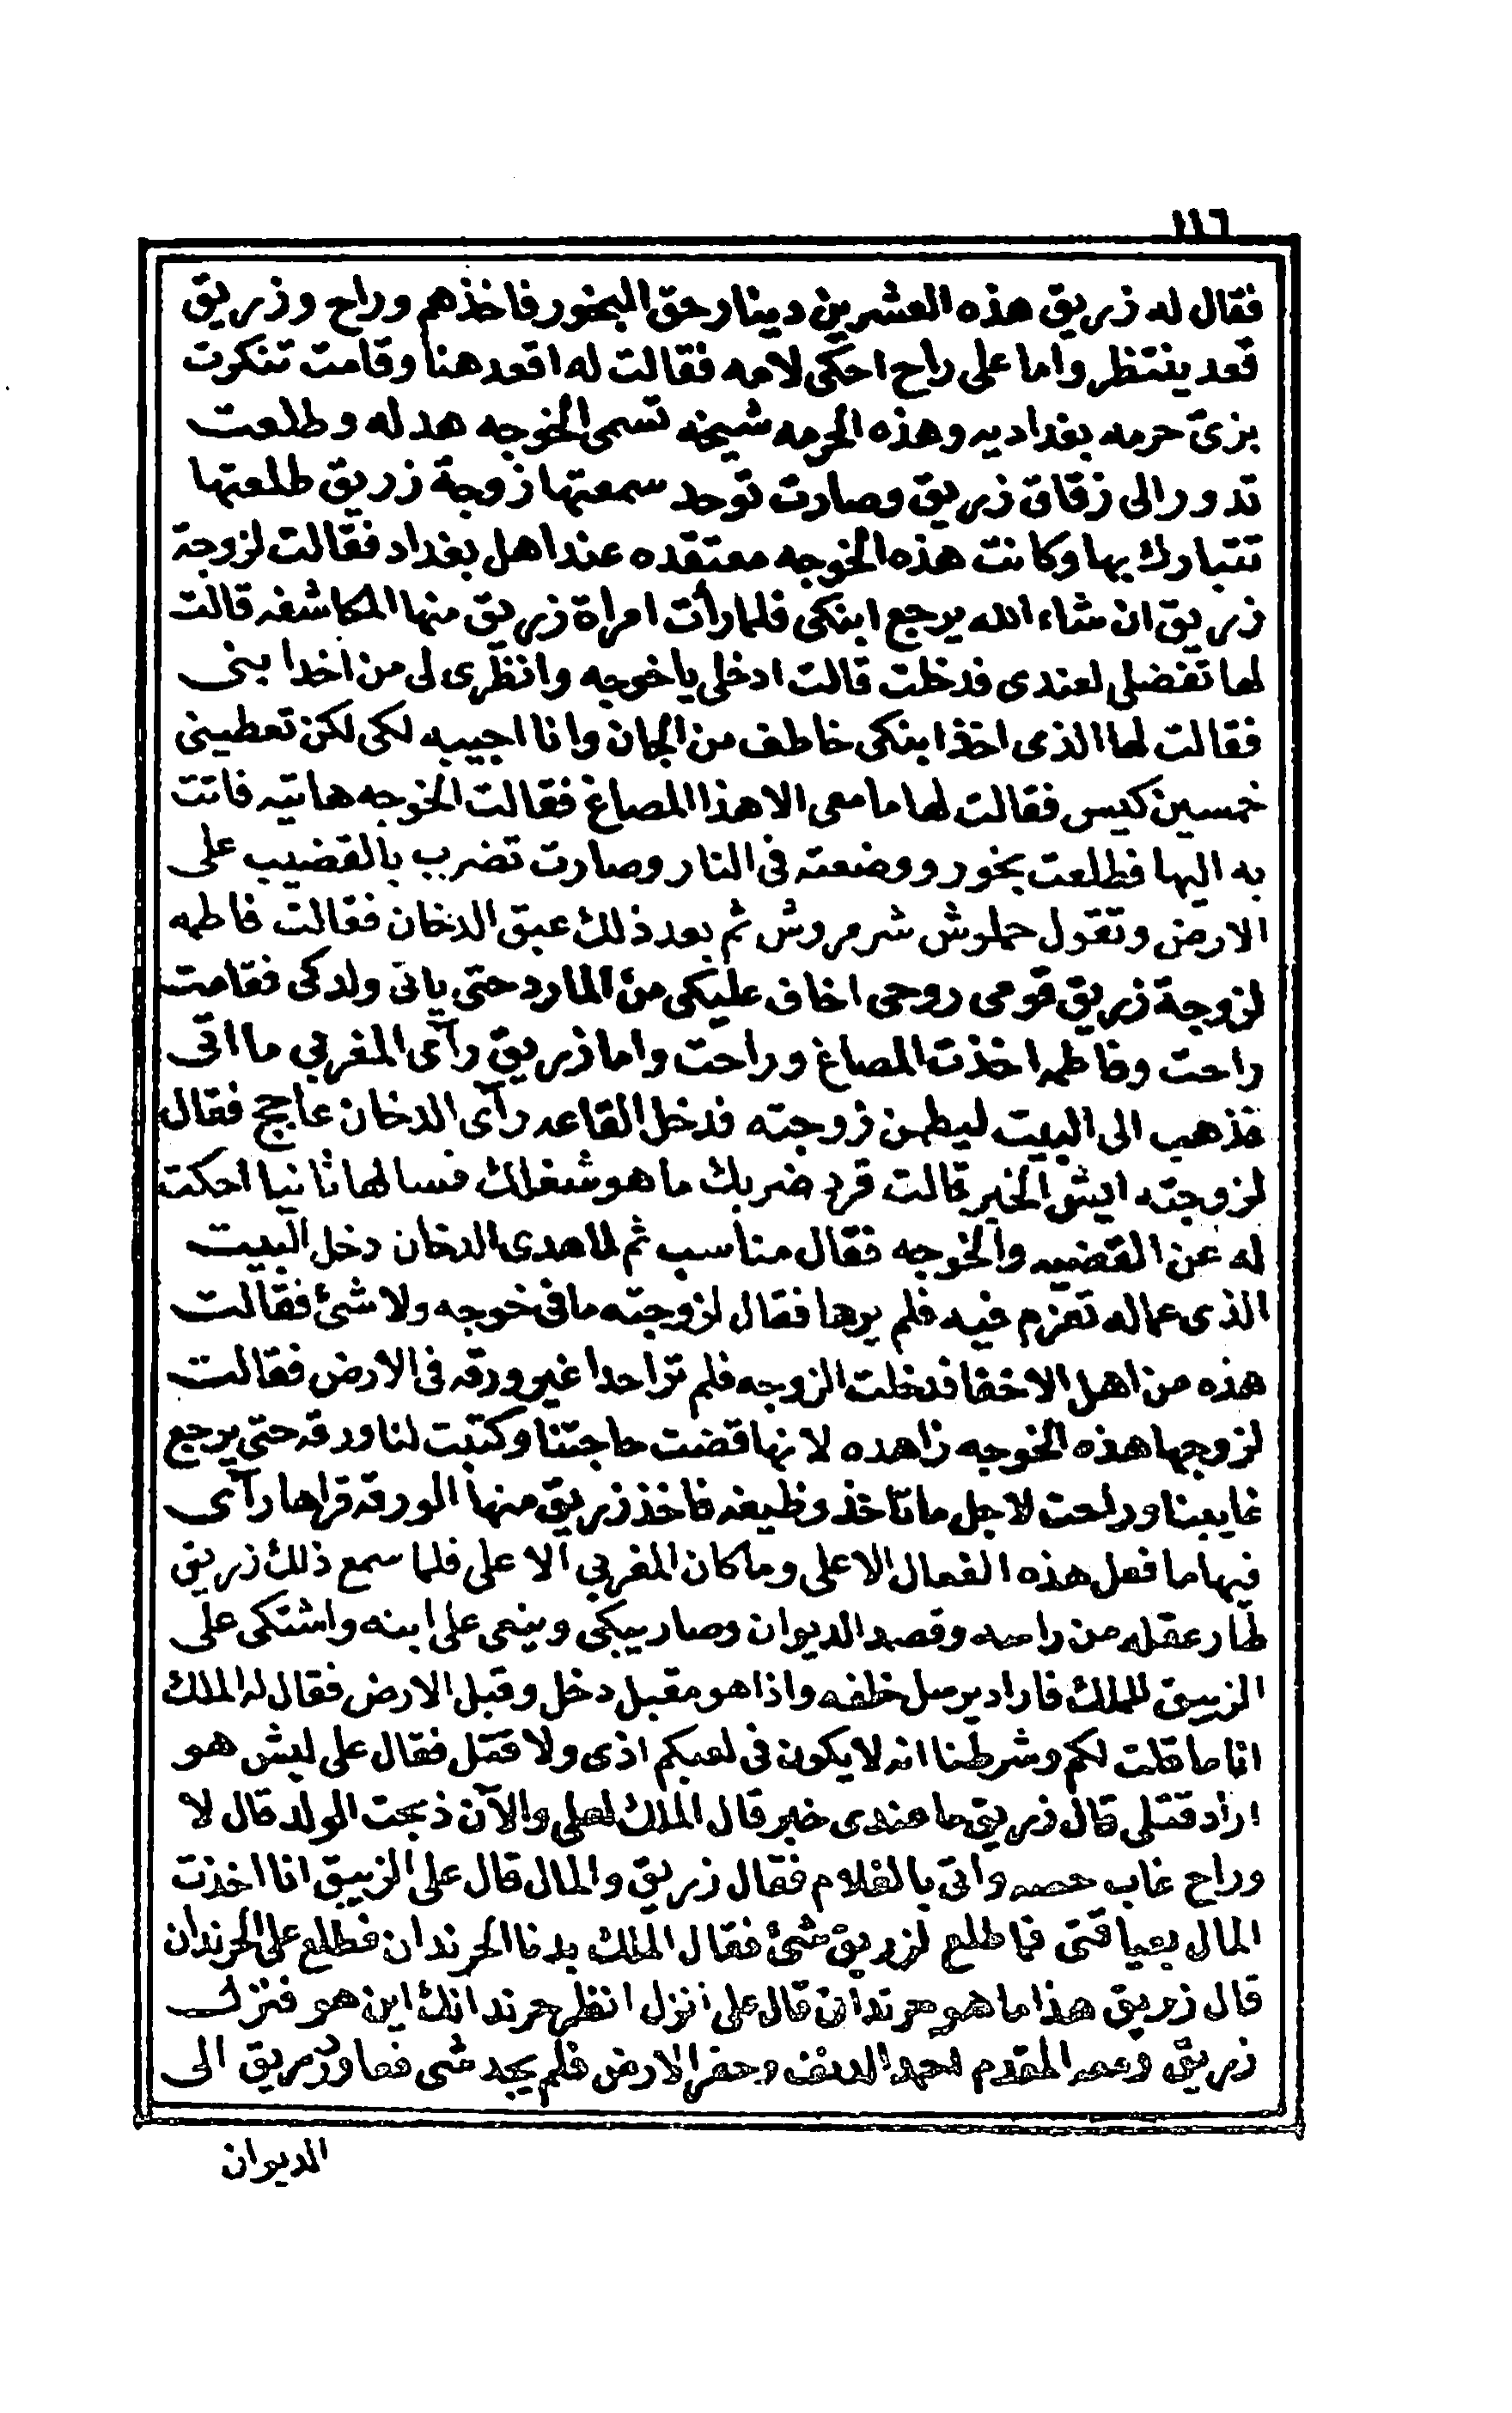 ١١٦
فقال له زريق هذه العشرين دينار حق البخور فاخذهم وراح وزريق
قعد ينتظر واما على راح احكى لامه فقالت له اقعد هنا وقامت تنكرت
بزى حرمه بغداديه وهذه الحرمه شيخه تسمى الخوجه هدله وطلعت
تدور الى زقاق زريق وصارت توحد سمعتها زوجة زريق طلعتها
تتبارك بها وكانت هذه الخوجه معتقده عند اهل بغداد فقالت لزوجة
زريق ان شاء الله يرجع ابنكى فلما رأت امراة زريق منها المكاشفه قالت
لها تفضلى لعندى فدخلت قالت ادخلى يا خوجه وانظرى لى من اخد ابنى
فقالت لها الذى اخذ ابنكى خاطف من الجان وانا اجيبه لكى لكن تعطينى
خمسين كيس فقالت لها ما معى الا هذا المصاغ فقالت الخوجه هاتيه فاتت
به اليها فطلعت بخور ووضعته فى النار وصارت تضرب بالقضيب على
الارض وتقول حملوش شرمروش ثم بعد ذلك عبق الدخان فقالت فاطمه
لزوجة زريق قومى روحى اخاف عليكى من المارد حتى ياتى ولدكى فقامت
راحت وفاطمه اخذت المصاغ وراحت واما زريق رآى المغربي ما اتى
فذهب الى البيت ليطمن زوجته فدخل القاعه رآى الدخان عاجج فقال
لزوجته ايش الخبر قالت قرد ضربك ما هو شغلك فسالها ثانيا احكت
له عن القضيه والخوجه فقال مناسب ثم لما هدى الدخان دخل البيت
الذى عماله تعزم فيه فلم يرها فقال لزوجته ما فى خوجه ولا شئ فقالت
هذه من اهل الاخفا فدخلت الزوجه فلم ترا احدا غير ورقه فى الارض فقالت
لزوجها هذه الخوجه زاهده لانها قضت حاجتنا وكتبت لنا ورقه حتى يرجع
غايبنا وراحت لاجل ما تاخذ وظيفه فاخذ زريق منها الورقه قراها رآى
فيها ما فعل هذه الفعال الا على وما كان المغربي الا على فلما سمع ذلك زريق
طار عقله من راسه وقصد الديوان وصار يبكى وينعى على ابنه واشتكى على
الزيبق للملك فاراد يرسل خلفه واذا هو مقبل دخل وقبل الارض فقال له الملك
انا ما قلت لكم وشرطنا انه لا يكون فى لعبكم اذى ولا قتل فقال على ليش هو
اراد قتلى قال زريق ما عندى خبر قال الملك لعلى والآن ذبحت الولد قال لا
وراح غاب حصه واتى بالغلام فقال زريق والمال قال على الزيبق انا اخذت
المال بعياقتى فما طلع لزريق شئ فقال الملك بدنا الحرندان فطلع على الحرندان
قال زريق هذا ما هو حرندان قال على انزل انظر حرندانك اين هو فنزل
زريق ومعه المقدم احمد الدنف وحفر الارض فلم يجد شى فعاود زريق الى
الديوان